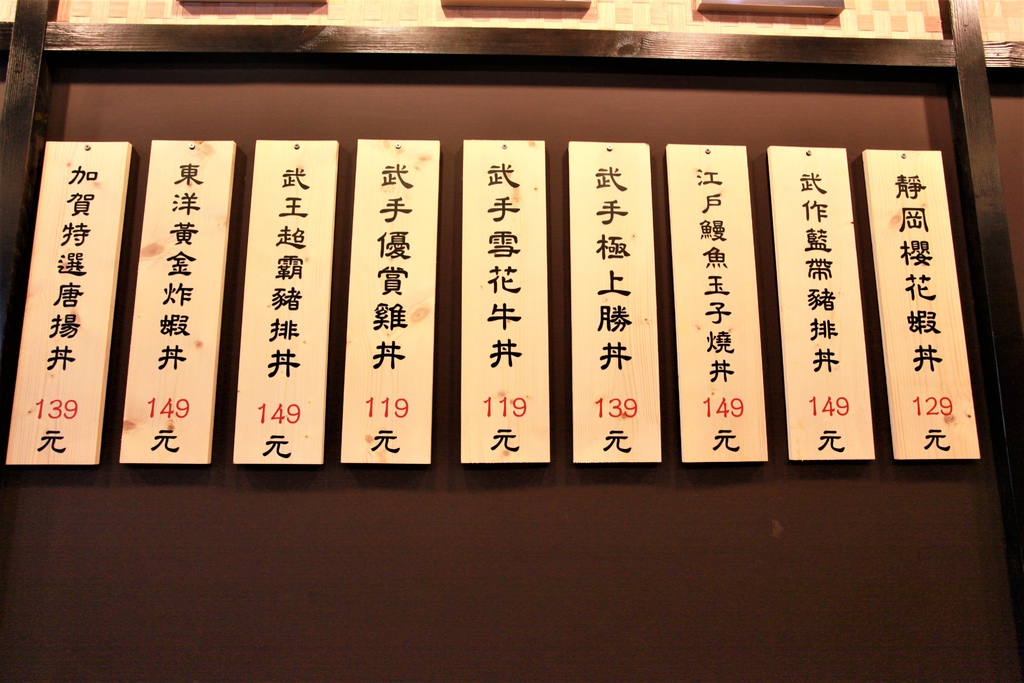 加賀特選唐揚丼
139
元
東洋黃金炸蝦丼
149
元
武王超霸豬排丼
149
元
武手優賞雞丼
119
元
武手雪花牛丼
119
元
武手極上勝丼
139
元
江戶鰻魚玉子燒丼
149
元
武作藍帶豬排丼
149
元
靜岡櫻花蝦丼
129
元